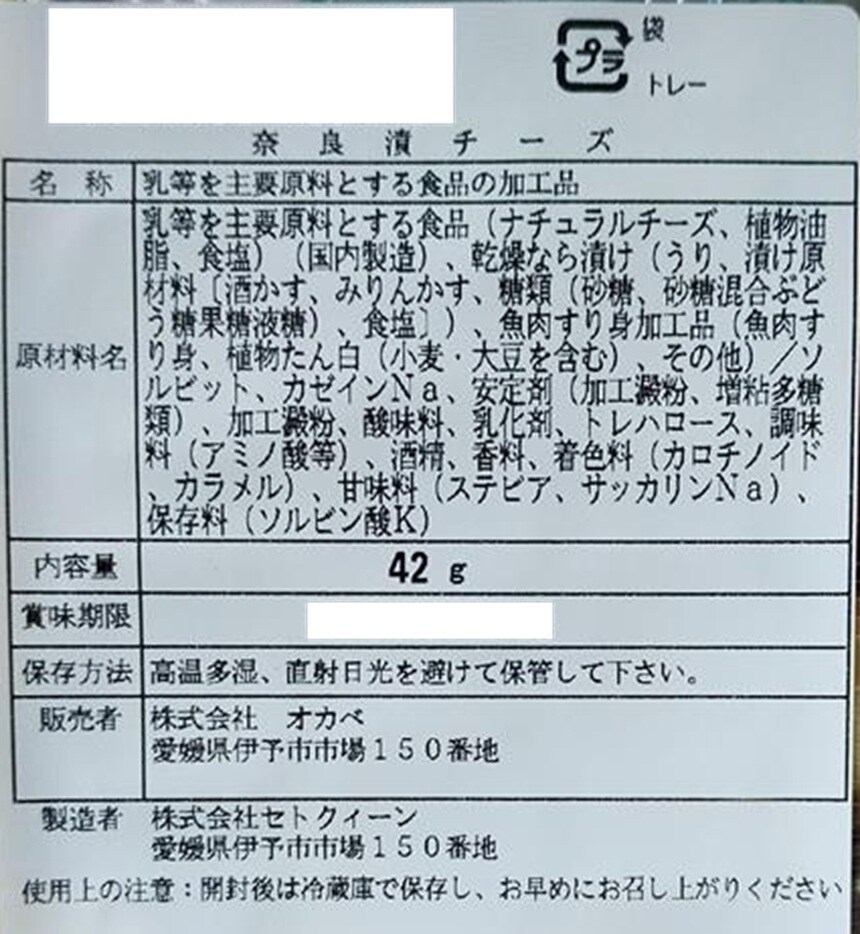 プラ
袋
トレー
奈良漬チーズ
名称 乳等を主要原料とする食品の加工品
原材料名 乳等を主要原料とする食品（ナチュラルチーズ、植物油
脂、食塩）（国内製造）、乾燥なら漬け（うり、漬け原
材料〔酒かす、みりんかす、糖類（砂糖、砂糖混合ぶど
う糖果糖液糖）、食塩〕）、魚肉すり身加工品（魚肉す
り身、植物たん白（小麦・大豆を含む）、その他）／ソ
ルビット、カゼインＮａ、安定剤（加工澱粉、増粘多糖
類）、加工澱粉、酸味料、乳化剤、トレハロース、調味
料（アミノ酸等）、酒精、香料、着色料（カロチノイド
、カラメル）、甘味料（ステビア、サッカリンＮａ）、
保存料（ソルビン酸Ｋ）
内容量 42 g
賞味期限
保存方法 高温多湿、直射日光を避けて保管して下さい。
販売者 株式会社　オカベ
愛媛県伊予市市場１５０番地
製造者 株式会社セトクィーン
愛媛県伊予市市場１５０番地
使用上の注意：開封後は冷蔵庫で保存し、お早めにお召し上がりください